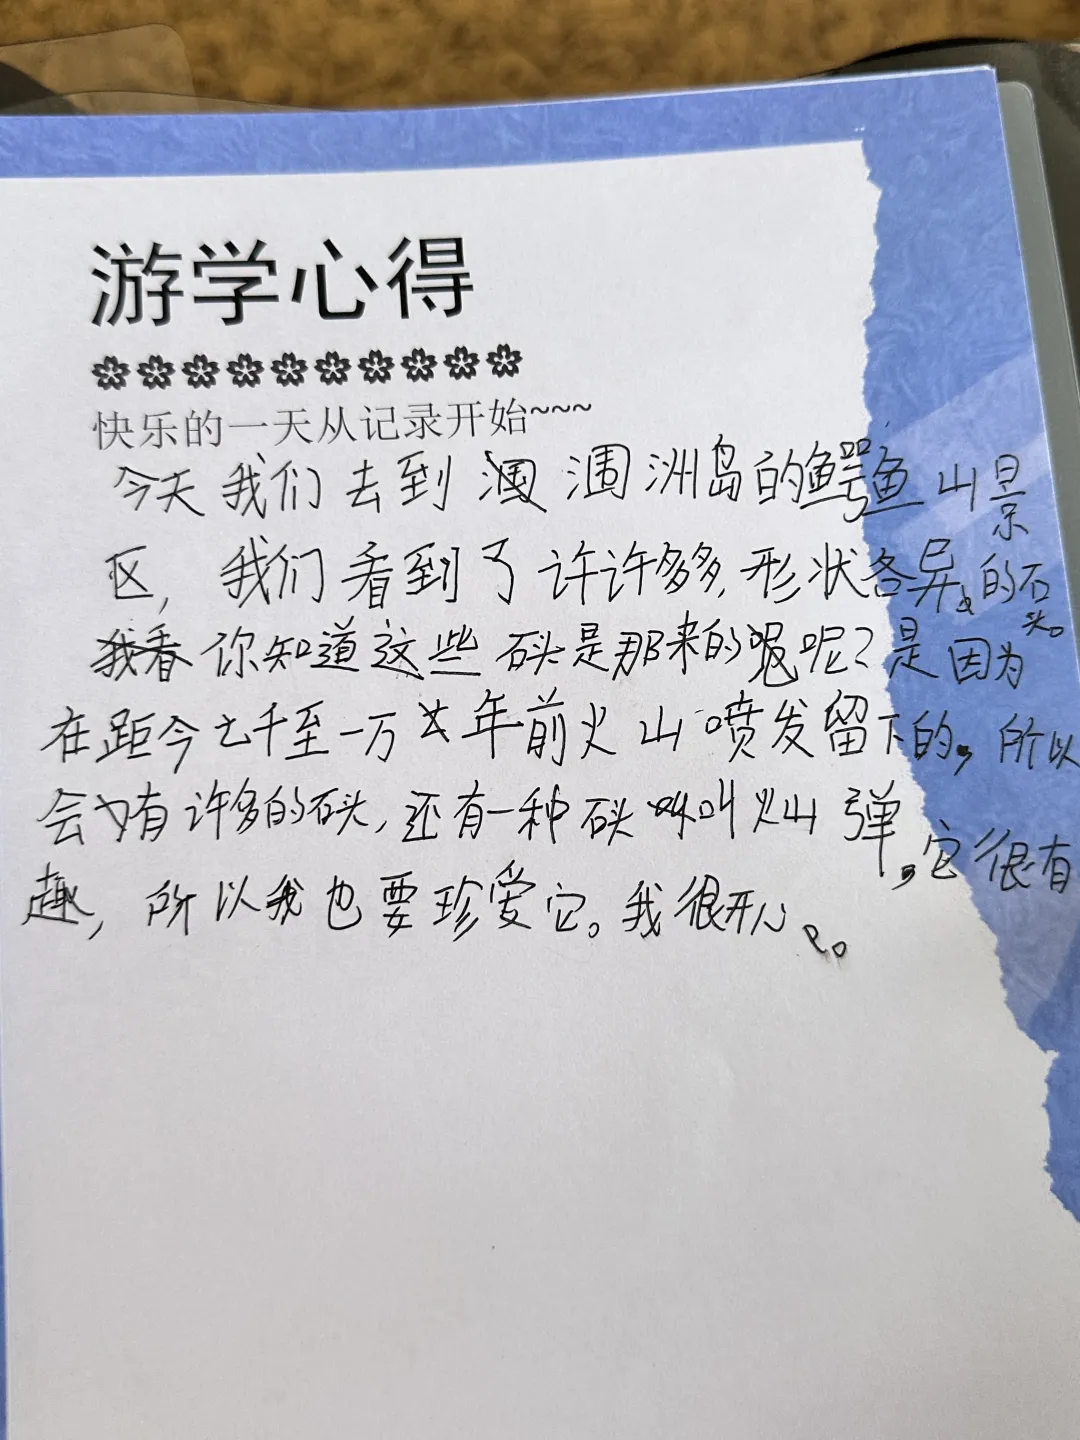 游学心得
快乐的一天从记录开始~~~
今天我们去到涠洲岛的鳄鱼山景
区,我们看到了许许多多,形状各异的石头。
你知道这些石头是那来的呢?是因为
在距今七千至一万年前火山喷发留下的,所以
会有许多的石头,还有一种石头叫火山弹。它很有
趣,所以我也要珍爱它。我很开心。